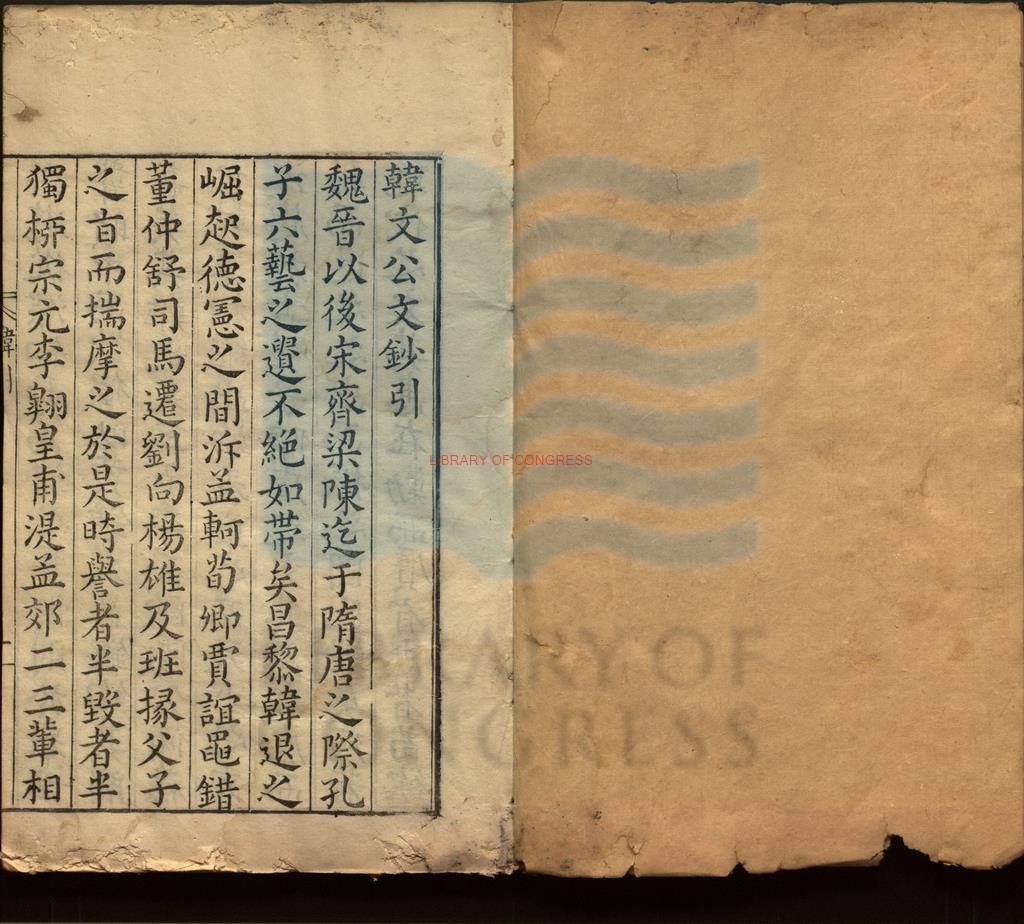 韓文公文鈔引
魏晉以後宋齊梁陳迄于隋唐之際孔
子六藝之遺不絕如帶矣昌黎韓退之
崛起德憲之間泝孟軻荀卿賈誼鼂錯
董仲舒司馬遷劉向楊雄及班掾父子
之旨而揣摩之於是時譽者半毀者半
獨柳宗元李翱皇甫湜孟郊二三輩相
韓引
一
LIBRARY OF CONGRESS
LIBRARY OF
CONGRESS